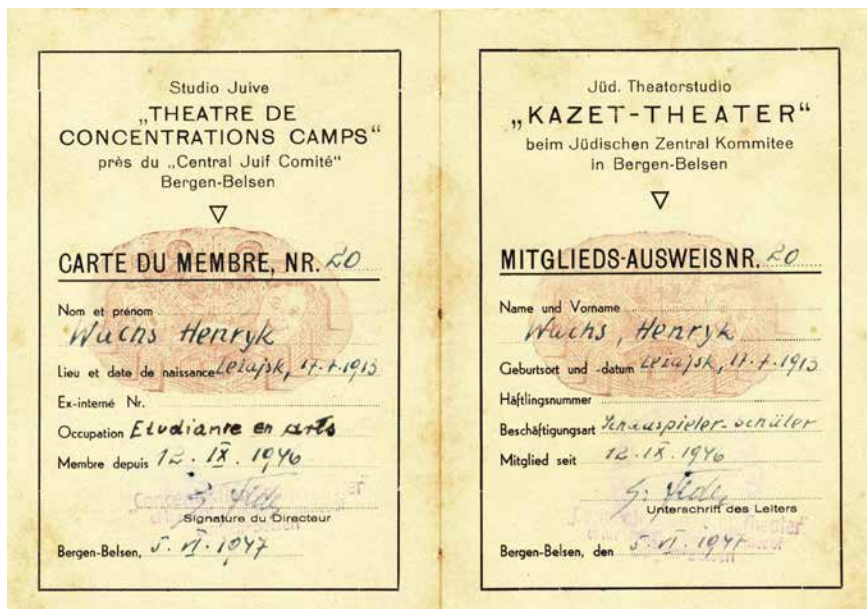 Studio Juive
„THEATRE DE
CONCENTRATIONS CAMPS“
près du „Central Juif Comité“
Bergen-Belsen
CARTE DU MEMBRE, NR. 20
Nom et prénom
Wachs Henryk
Lieu et date de naissance Leżajsk, 17.7.1913
Ex-interné Nr.
Occupation Etudiante en arts
Membre depuis 12. IX. 1946
Signature du Directeur
Bergen-Belsen, 5. VI. 1947
Jüd. Theaterstudio
„KAZET-THEATER“
beim Jüdischen Zentral Kommitee
in Bergen-Belsen
MITGLIEDS-AUSWEIS NR. 20
Name und Vorname
Wachs, Henryk
Geburtsort und -datum Leżajsk, 17.7.1913
Häftlingsnummer
Beschäftigungsart Schauspieler-schüler
Mitglied seit 12. IX. 1946
Unterschrift des Leiters
Bergen-Belsen, den 5. VI. 1947